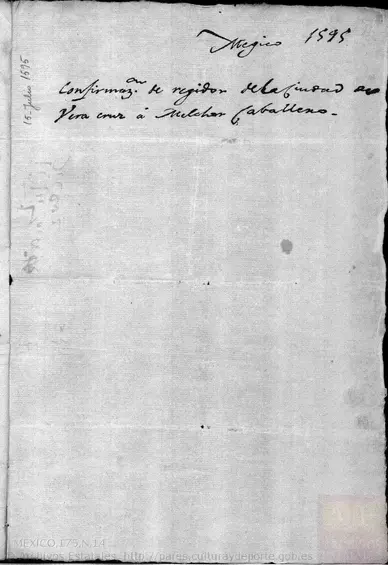 Megico 1595
Confirmaz.on de regidor de la Ciudad de
Vera cruz á Melchor Caballero.
15. Julio 1595
MEXICO,175,N.14
Archivos Estatales, http://pares.culturaydeporte.gob.es